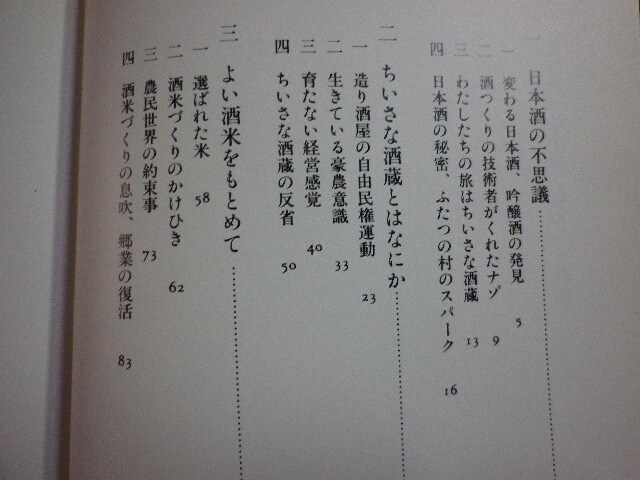 一 日本酒の不思議
一 変わる日本酒、吟醸酒の発見 5
二 酒つくりの技術者がくれたナゾ 9
三 わたしたちの旅はちいさな酒蔵 13
四 日本酒の秘密、ふたつの村のスパーク 16
二 ちいさな酒蔵とはなにか
一 造り酒屋の自由民権運動 23
二 生きている豪農意識 33
三 育たない経営感覚 40
四 ちいさな酒蔵の反省 50
三 よい酒米をもとめて
一 選ばれた米 58
二 酒米づくりのかけひき 62
三 農民世界の約束事 73
四 酒米づくりの息吹、郷業の復活 83